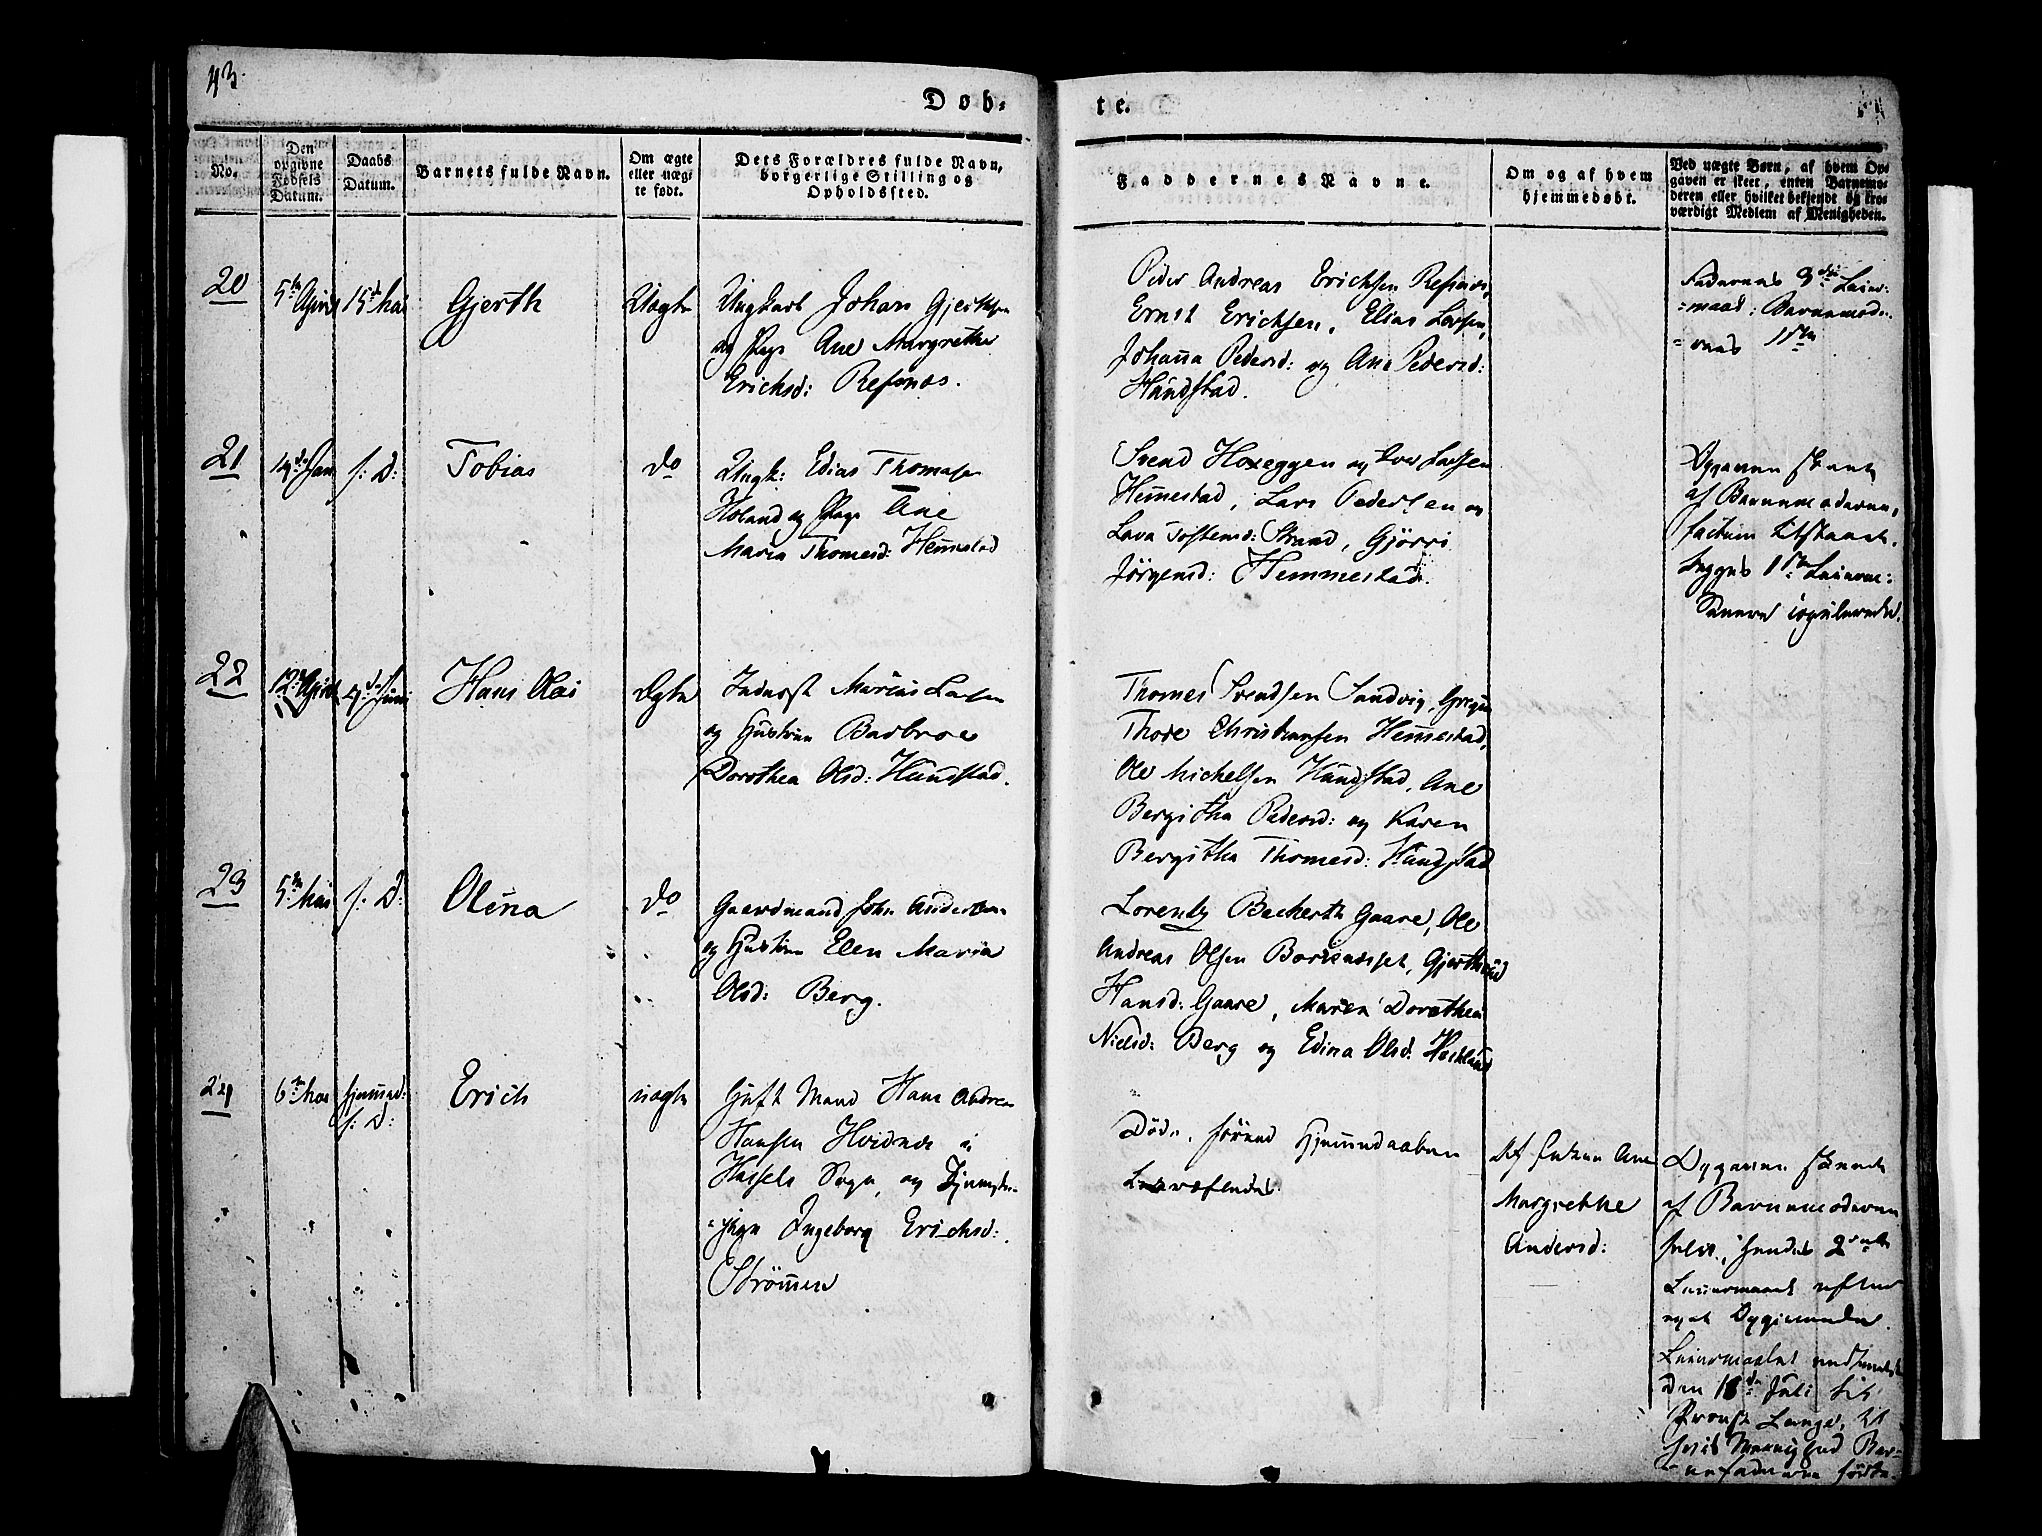 43.
Döb-
te.
No.
Den opgivne Födsels Datum.
Daabs Datum.
Barnets fulde Navn.
Om ægte eller uægte födt.
Dets Forældres fulde Navn, borgerlige Stilling og Opholdssted.
Faddernes Navne.
Om og af hvem hjemmedöbt.
Ved uægte Börn, af hvem Opgaven er skeet, enten Barnemoderen eller hvilket bekjendt og troværdigt Medlem af Menigheden.
20
5te April
15de Mai
Gjerth
Uægte
Ungkarl Johan Gjerthsen
og Pige Ane Margrethe
Erichsd: Refsnæs.
Peder Andreas Erichsen Refsnæs,
Ernst Erichsen, Elias Larsen,
Johanna Pedersd: og Ane Pedersd:
Hundstad.
Faderens 3die Leier-
=maal; Barnemode-
=rens 1ste
21
s: D:
Tobias
do
Ungk: Edias Thomasen
Holand og Pige Ane
Maria Thomesd: Hemestad
Svend Hoxeggen og Iver Larsen
Hemestad, Lars Pedersen og
Lava Tostensd: Strand, Gjörri
Jörgensd: Hemmestad.
Opgaven skeet
af Barnemoderen,
factum tilstaaet.
Begges 1ste Leierm:
22
12te April
4de Juni
Hans Olai
Ægte
Inderst Marius Larsen
og Hustrue Barbroe
Dorothea Olsd: Hundstad.
Thomes Svendsen Sandvig,
Thore Christiansen Hemestad,
Ole Michelsen Hundstad, Ane
Bergitha Pedersd: og Karen
Bergitha Thomesd: Hundstad
23
5te Mai
s: D:
Olina
do
Gaardmand John Andersen
og Hustrue Elen Maria
Olsd: Berg.
Lorentz Beckerth Gaare, Ole
Andreas Olsen Borkenæsset,
Hansd: Gaare, Maren Dorothea
Nielsd: Berg og Edina Olsd:
24
6te Mai
hjemmed:
s: D:
Erich
uægte
Gift Mand Hans Andreas
Hansen Hvidnæs i
Hassels Sogn, og Tjeneste-
=pige Ingeborg Erichsd:
Strömmen
Döde, förend Hjemmedaaben
Af Enken Ane
Margrethe
Andersd:
Opgaven skeet
af Barnemoderen
selv, hendes 2det
Leiermaal efter
eget Opgivende.
Leiermaalet
den 18de Juli til
Provst Lange, til